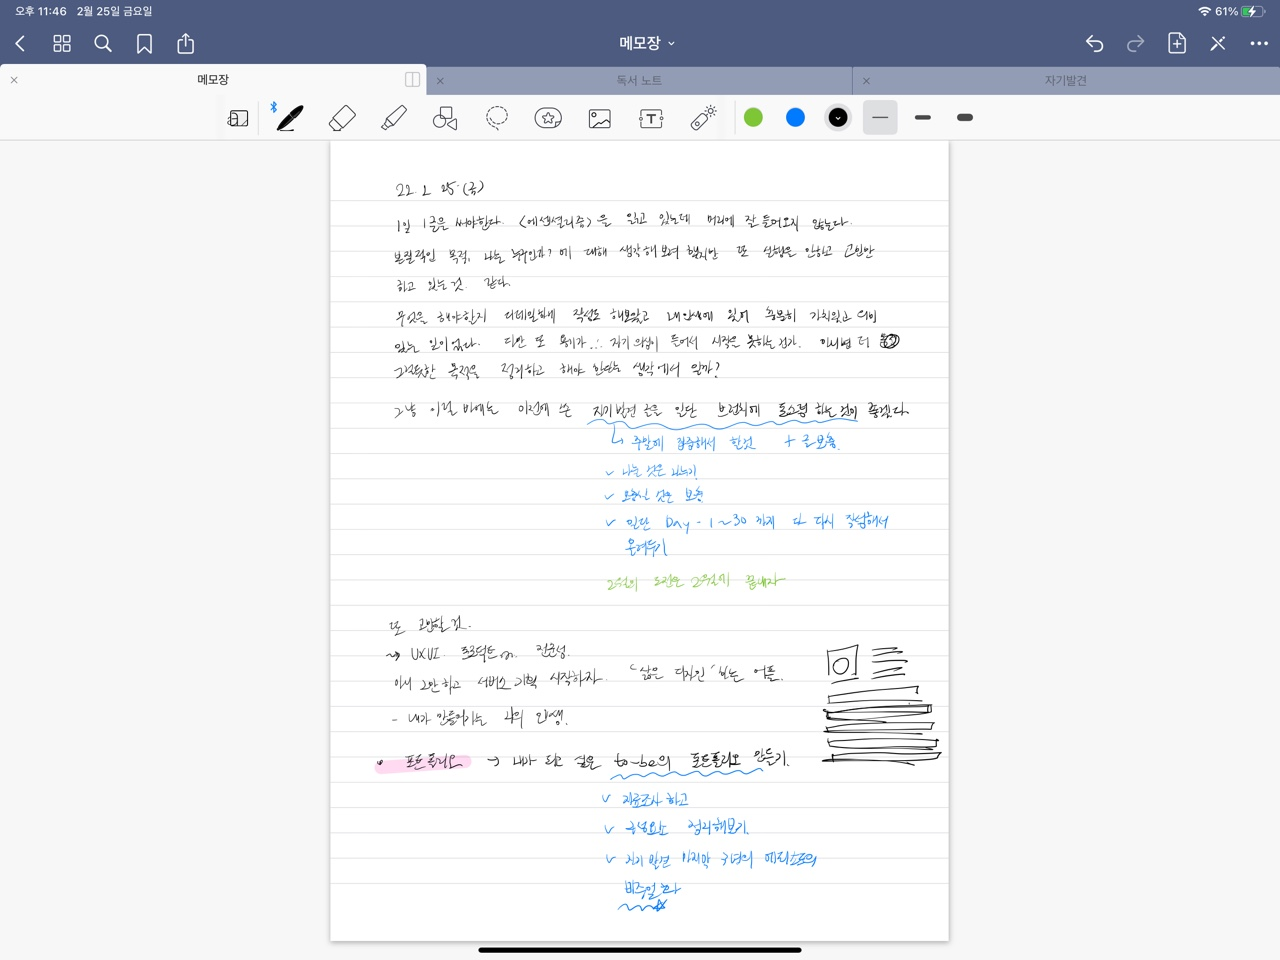 오후 11:46 2월 25일 금요일
61%
메모장
메모장
독서 노트
자기발견
22. 2. 25. (금)
1일 1글은 써야한다. <에센셜리즘>을 읽고 있는데 머리에 잘 들어오지 않는다.
본질적인 목적, 나는 누구인가? 에 대해 생각해보려 했지만 또 실행은 안하고 고민만
하고 있는 것 같다.
무엇을 해야할지 디테일하게 작성도 해보았고 내 인생에 있어 충분히 가치있고 의미
있는 일이었다. 다만 또 용기가... 자기 의심이 들어서 시작을 못하는 건가. 아니면 더
그럴듯한 목적을 정리하고 해야 한다는 생각에서 일까?
그냥 이럴 바에는 이전에 쓴 자기발견 글을 일단 브런치에 포스팅 하는 것이 좋겠다.
주말에 집중해서 할것 + 글보충.
나눌 것은 나누기
보충할 것은 보충
일단 Day - 1 ~ 30 까지 다 다시 작성해서
올려두기
2월의 도전은 2월에 끝내자
또 고민할 것.
→ UXUI. 프로덕트 전문성.
이제 그만하고 서비스 기획 시작하자. "삶은 디자인" 보는 어플.
- 내가 만들어가는 나의 인생.
• 포트폴리오 → 내가 되고 싶은 to-be의 포트폴리오 만들기.
자료조사 하고
구성요소 정리해보기.
자기 발견 마지막 3년의 에피소드의
비주얼화